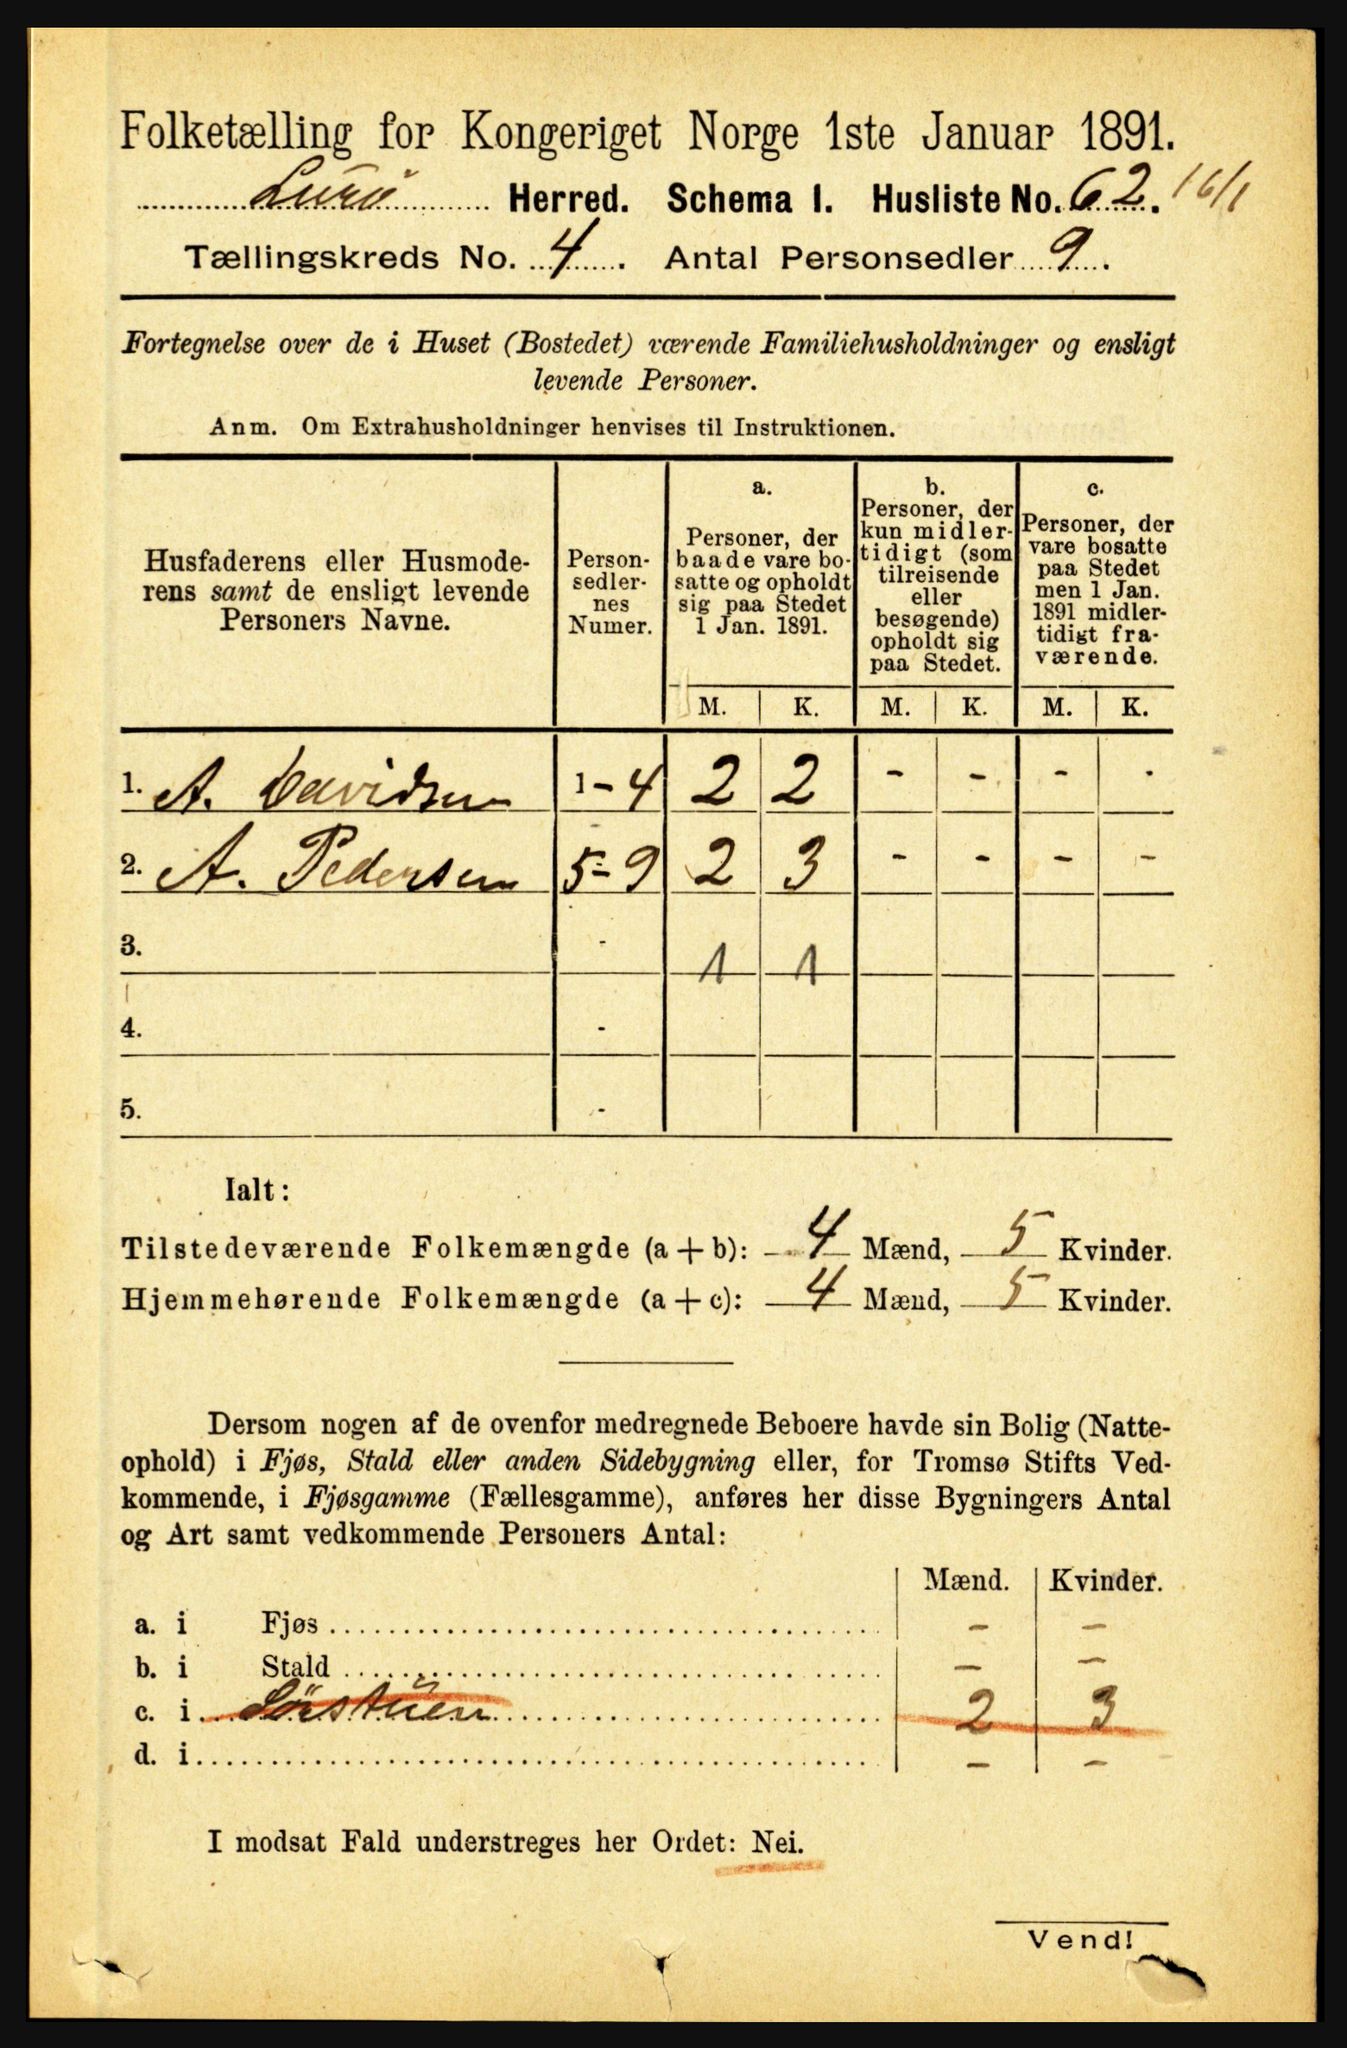 Folketælling for Kongeriget Norge 1ste Januar 1891.
Lurö Herred. Schema I. Husliste No. 62. 16/1
Tællingskreds No. 4. Antal Personsedler 9.
Fortegnelse over de i Huset (Bostedet) værende Familiehusholdninger og ensligt
levende Personer.
Anm. Om Extrahusholdninger henvises til Instruktionen.
Husfaderens eller Husmode-
rens samt de ensligt levende
Personers Navne.
Person-
sedler-
nes
Numer.
a.
Personer, der
baade vare bo-
satte og opholdt
sig paa Stedet
1 Jan. 1891.
b.
Personer, der
kun midler-
tidigt (som
tilreisende
eller
besøgende)
opholdt sig
paa Stedet.
c.
Personer, der
vare bosatte
paa Stedet
men 1 Jan.
1891 midler-
tidigt fra-
værende.
M. K. M. K. M. K.
1. A. Davidsen 1-4 2 2 - - - -
2. A. Pedersen 5-9 2 3 - - - -
3. - 1 1
4. -
5. -
Ialt:
Tilstedeværende Folkemængde (a+b): 4 Mænd, 5 Kvinder.
Hjemmehørende Folkemængde (a+c): 4 Mænd, 5 Kvinder.
Dersom nogen af de ovenfor medregnede Beboere havde sin Bolig (Natte-
ophold) i Fjøs, Stald eller anden Sidebygning eller, for Tromsø Stifts Ved-
kommende, i Fjøsgamme (Fællesgamme), anføres her disse Bygningers Antal
og Art samt vedkommende Personers Antal:
Mænd. Kvinder.
a. i Fjøs - -
b. i Stald - -
c. i Sörstuen 2 3
d. i - -
I modsat Fald understreges her Ordet: Nei.
Vend!